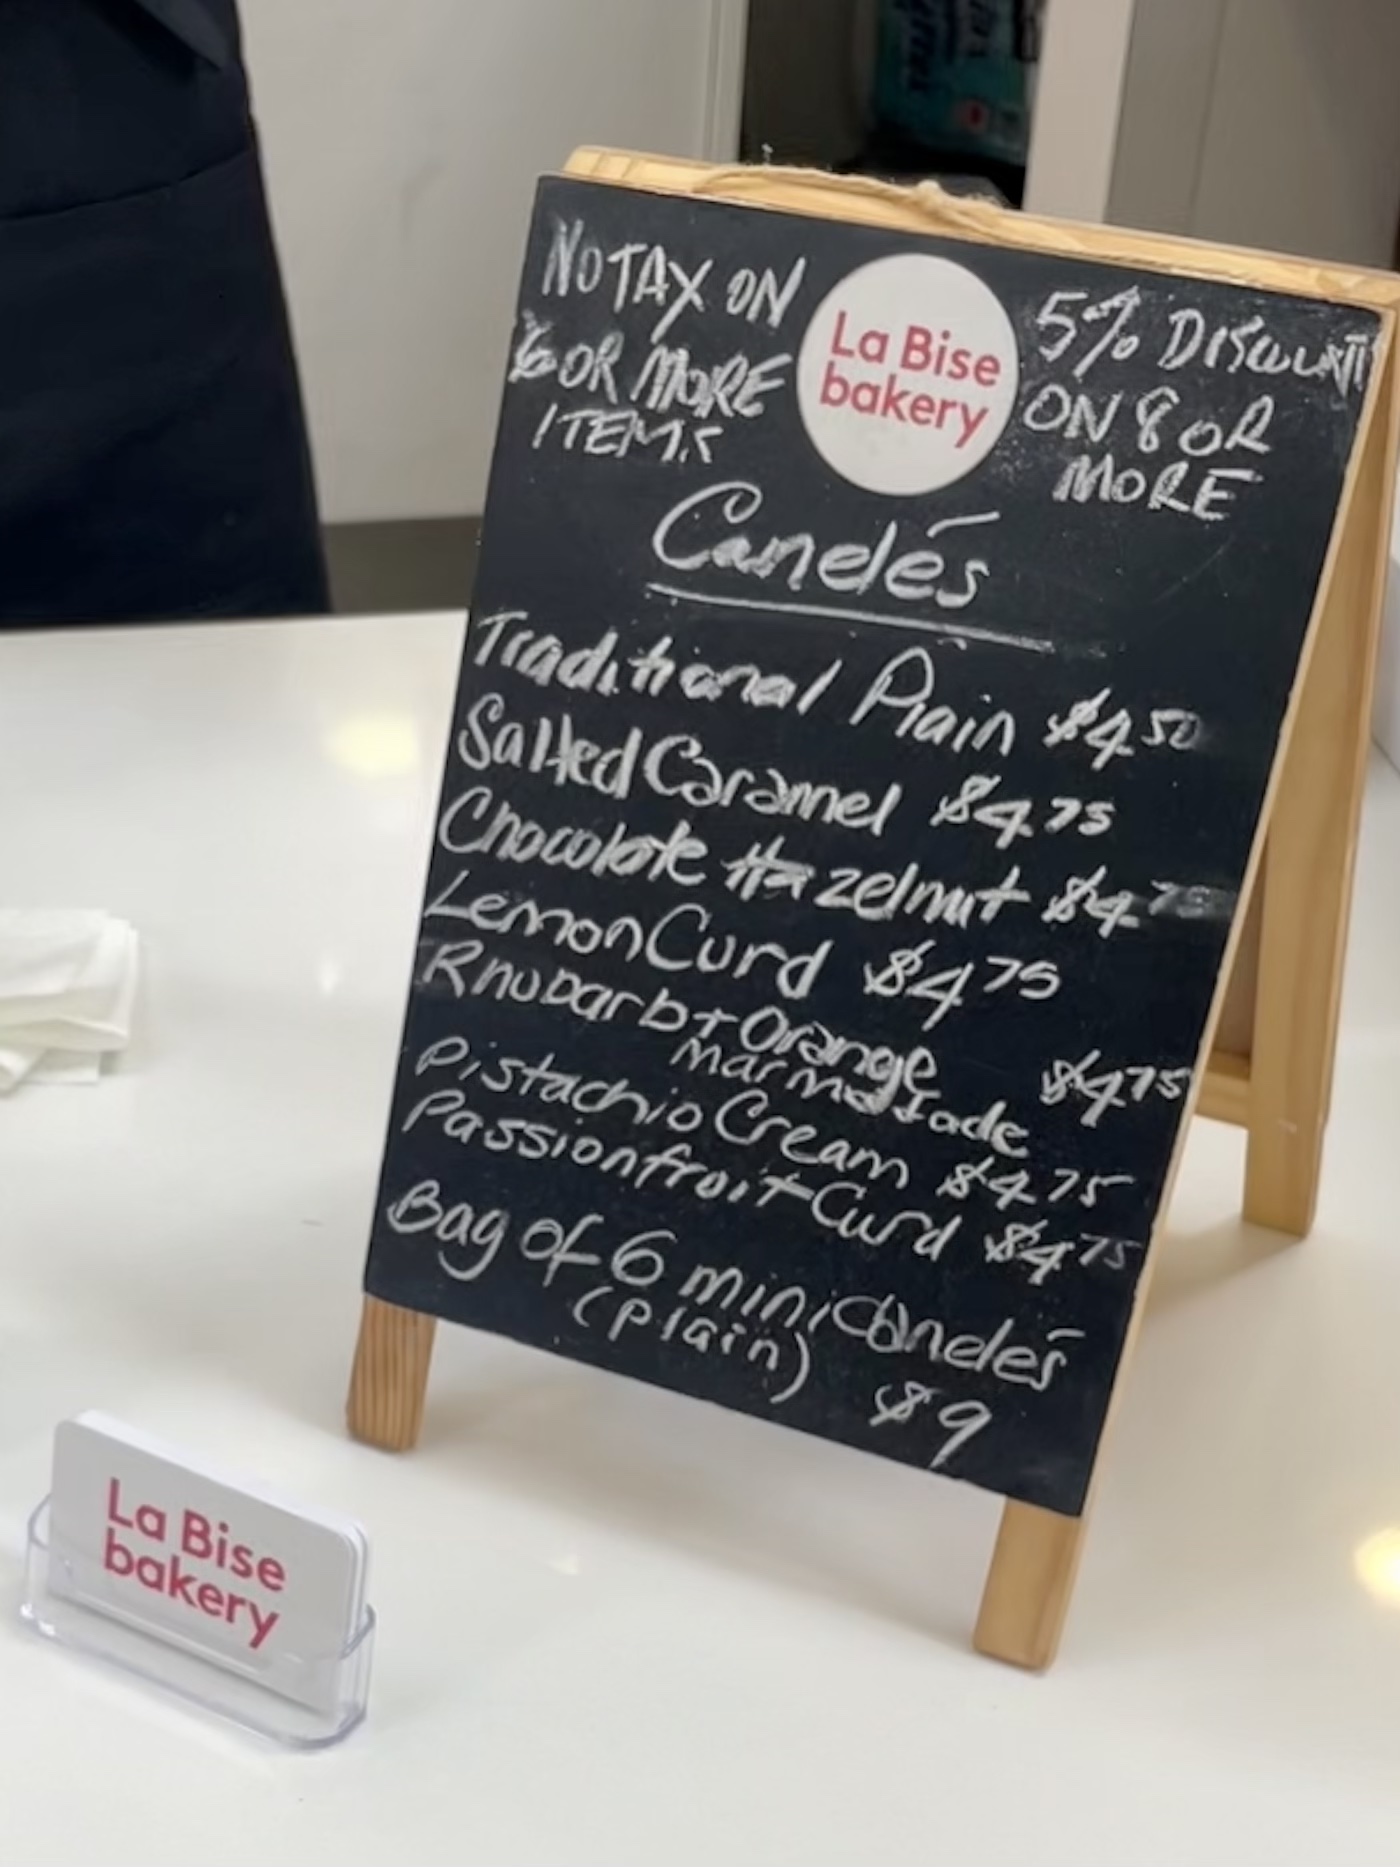 NO TAX ON
6 OR MORE
ITEMS
La Bise
bakery
5% DISCOUNT
ON 8 OR
MORE
Canelés
Traditional Plain $4.50
Salted Caramel $4.75
Chocolate Hazelnut $4.75
Lemon Curd $4.75
Rhubarb + Orange
Marmalade $4.75
Pistachio Cream $4.75
Passionfruit Curd $4.75
Bag of 6 mini Canelés
(plain) $9
La Bise
bakery